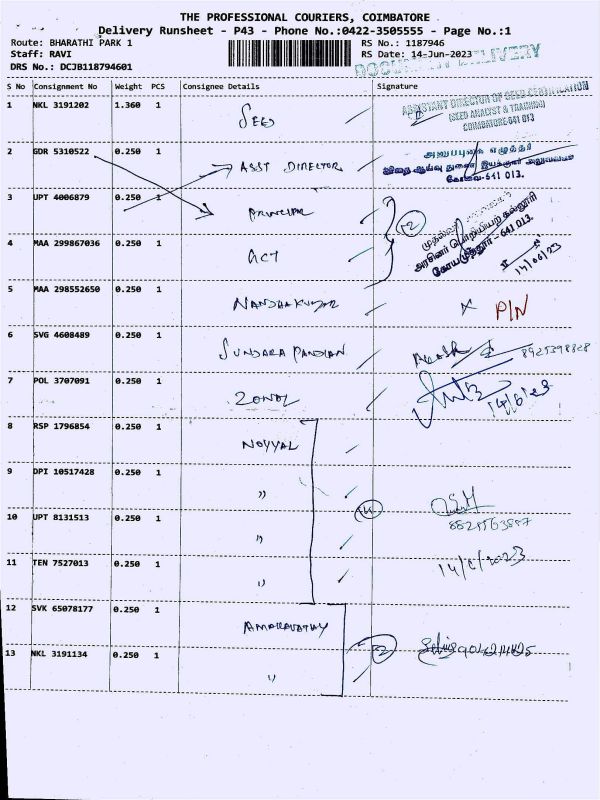 THE PROFESSIONAL COURIERS, COIMBATORE
Delivery Runsheet - P43 - Phone No.:0422-3505555 - Page No.:1
Route: BHARATHI PARK 1 RS No.: 1187946
Staff: RAVI RS Date: 14-Jun-2023
DRS No.: DCJB118794601
DOCUMENT DELIVERY
S No Consignment No Weight PCS Consignee Details Signature
1 NKL 3191202 1.360 1 SEED
ASSISTANT DIRECTOR OF SEED CERTIFICATION
(SEED ANALYST & TRAINING)
COIMBATORE-641 013
2 GDR 5310522 0.250 1 ASST DIRECTOR
அலுவலகம்
கோவை-641 013.
3 UPT 4006879 0.250 1 PRINCIPAL
முதல்வர்
அரசினர் பொறியியற் கல்லூரி
கோயமுத்தூர் - 641 013.
14/06/23
4 MAA 299867036 0.250 1 GCT
5 MAA 298552650 0.250 1 NANDHAKUMAR P/N
6 SVG 4608489 0.250 1 SUNDARA PANDIAN
7 POL 3707091 0.250 1 ZONAL 14/6/23
8 RSP 1796854 0.250 1 NOYYAL
9 DPI 10517428 0.250 1 "
10 UPT 8131513 0.250 1 "
11 TEN 7527013 0.250 1 " 14/6/2023
12 SVK 65078177 0.250 1 AMARAVATHY
13 NKL 3191134 0.250 1 "